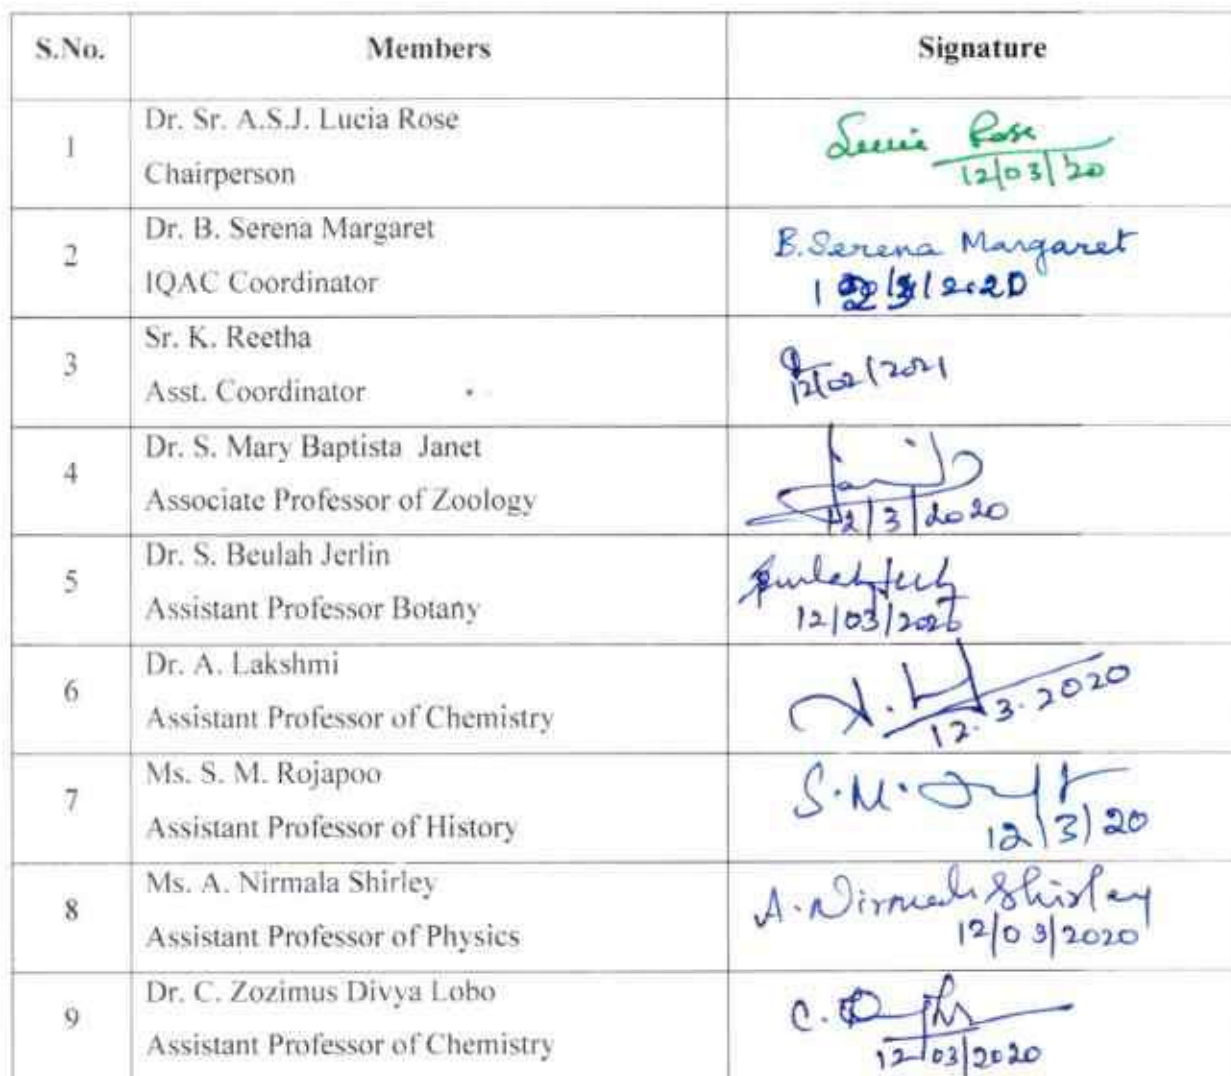 S.No. Members Signature
1
Dr. Sr. A.S.J. Lucia Rose
Chairperson
Lucia Rose
12/03/'20
2
Dr. B. Serena Margaret
IQAC Coordinator
B. Serena Margaret
3
Sr. K. Reetha
Asst. Coordinator
12/02/2021
4
Dr. S. Mary Baptista Janet
Associate Professor of Zoology
12/3/2020
5
Dr. S. Beulah Jerlin
Assistant Professor Botany
12/03/2020
6
Dr. A. Lakshmi
Assistant Professor of Chemistry
12.3.2020
7
Ms. S. M. Rojapoo
Assistant Professor of History
S.M.
12/3/20
8
Ms. A. Nirmala Shirley
Assistant Professor of Physics
A. Nirmala Shirley
12/03/2020
9
Dr. C. Zozimus Divya Lobo
Assistant Professor of Chemistry
C.
12/03/2020